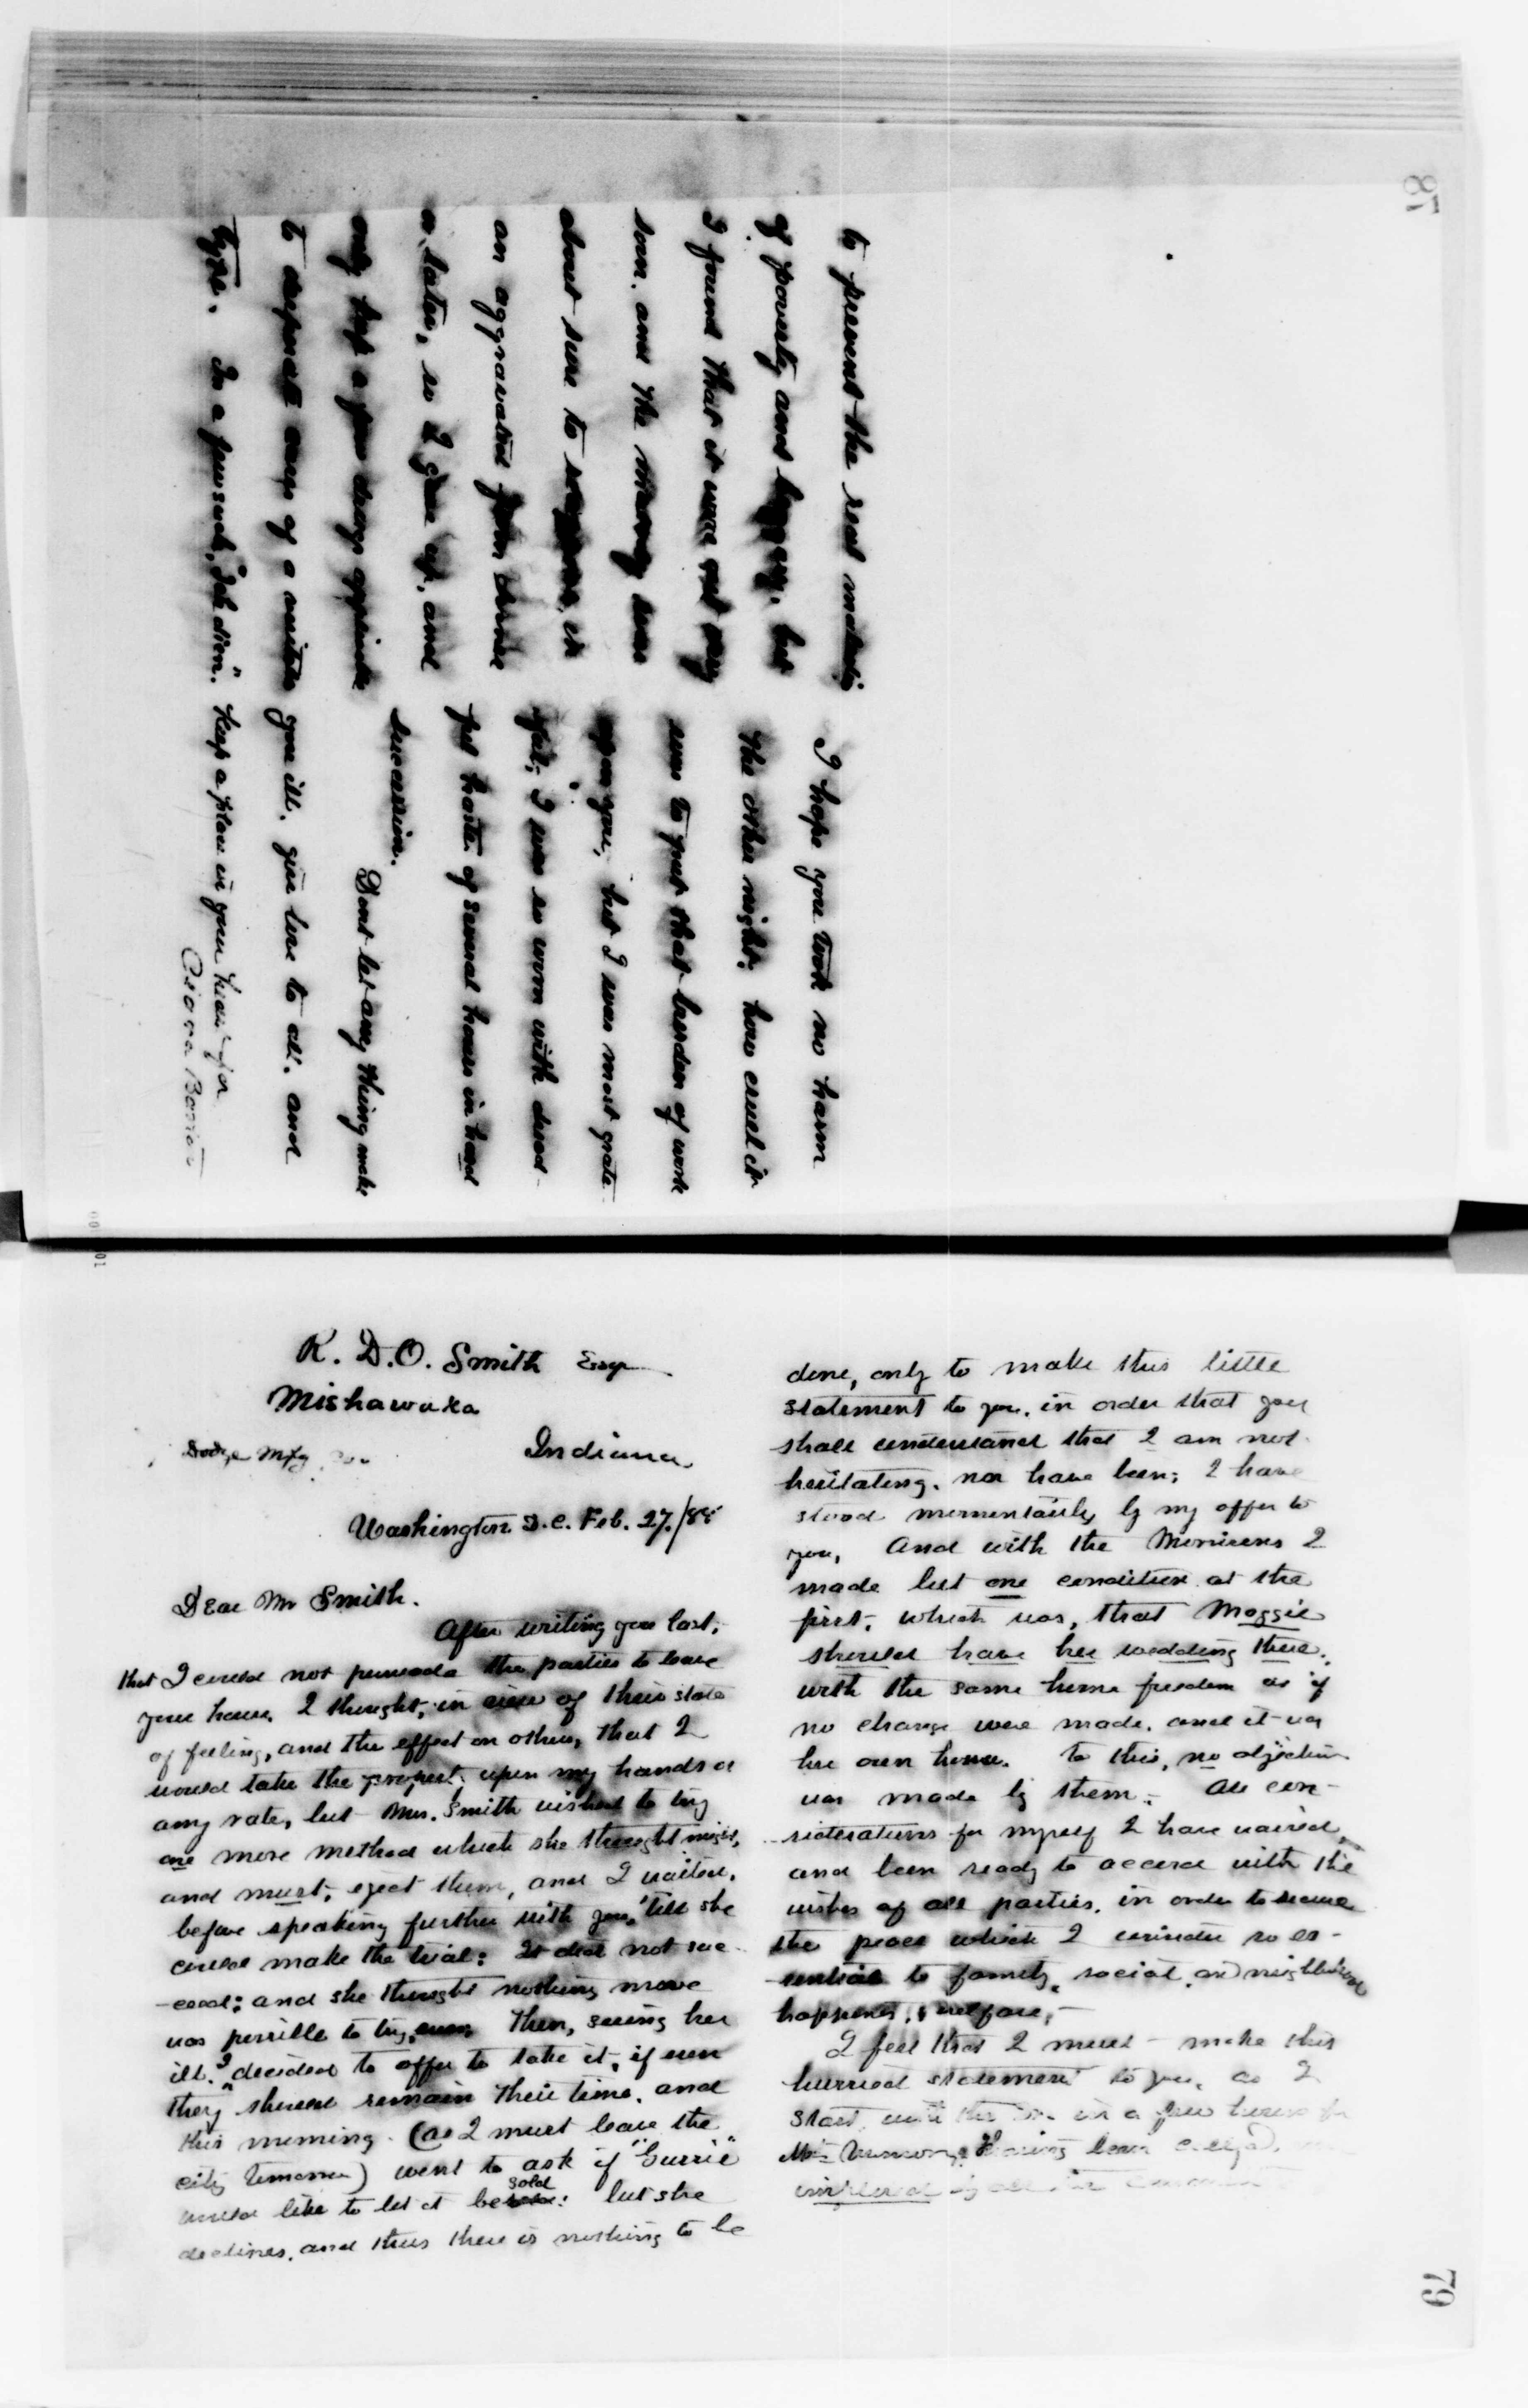 78
to prevent the real
of poverty and beggary. but
I found that it was not any
soon. and the money was
about sure to reappear, in
an aggravated form sooner
or later, so I gave up, and
only kept a few drugs applicable
to desperate cases of a
type. In a few such, "Ich dien".
I hope you took no harm
the other night; how cruel it
was to put that burden of work
upon you, but I was most grate-
ful; I was so worn with dread-
ful haste of several hours in hard
succession.
Dont let any thing make
you ill. give love to all. and
Keep a place in your heart for
Clara Barton
K. D. O. Smith Esqr
Mishawaka
Dodge Mfg Co
Indiana
Washington D.C. Feb. 27./88
Dear Mr Smith.
After writing you last,
that I could not persuade the parties to leave
your house, I thought, in view of their state
of feeling, and the effect on others, that I
would take the property upon my hands at
any rate, but Mrs. Smith wished to try
one more method which she thought might,
and must, eject them, and I waited,
before speaking further with you, till she
could make the trial: It did not suc-
-ceed; and she thought nothing more
was possible to try, Then, seeing her
ill. I decided to offer to take it, if even
they should remain their time, and
this morning - (as I must leave the
city tomorrow) went to ask if "Gurrie"
would like to let it be sold: but she
declines, and thus there is nothing to be
done, only to make this little
statement to you, in order that you
shall understand that I am not
hesitating, nor have been; I have
stood momentarily by my offer to
you, And with the Morrisons I
made but one condition at the
first; which was, that Maggie
should have her wedding there,
with the same home freedom as if
no change were made, and it was
her own home. To this, no objection
was made by them. All con-
siderations for myself I have waived,
and been ready to accord with the
wishes of all parties, in order to secure
the peace which I consider so es-
sential to family, social, and neighborhood
happiness, & welfare,-
I feel that I must - make this
hurried statement to you, as I
start with the in a few hours for
having been
by all the
79